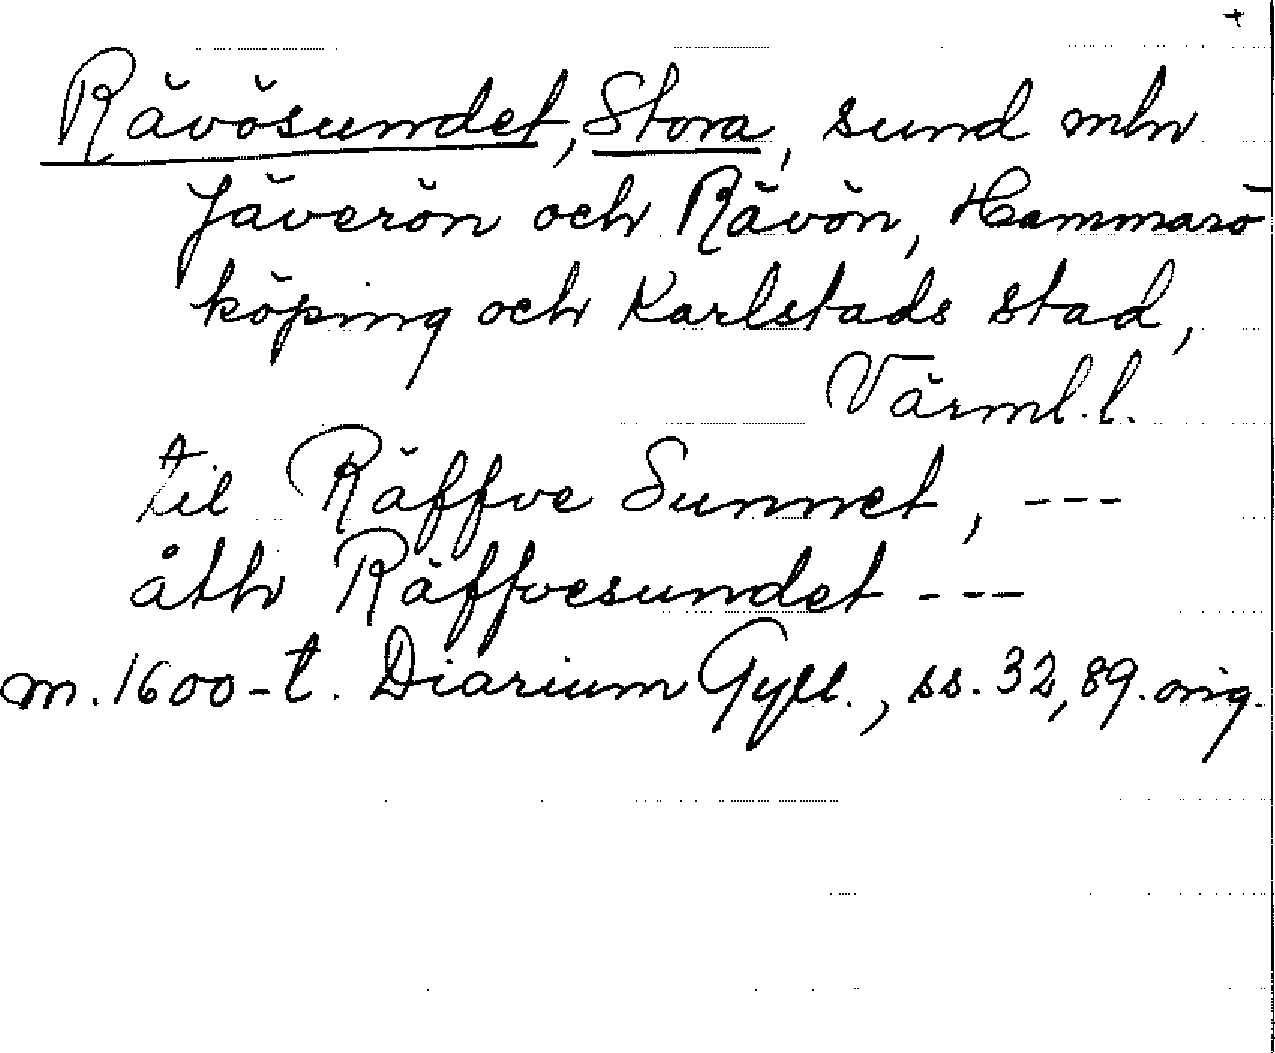 +
Rävösundet, Stora, sund mln
Jäverön och Rävön, Hammarö
köping och Karlstads stad,
Värml. l.
til Räffve Sunnet, ---
åth Räffvesundet ---
m. 1600-t. Diarium Gyll., ss. 32, 89. orig.